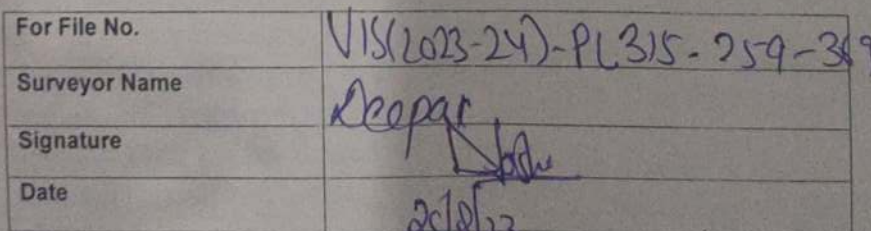 For File No. VIS(2023-24)-PL315-259-369
Surveyor Name Deepak
Signature
Date